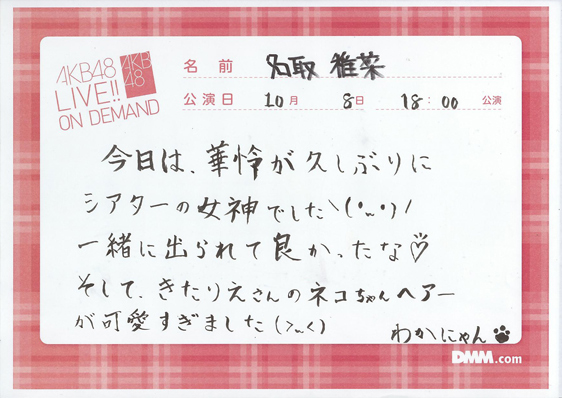 AKB48
LIVE!!
ON DEMAND
AKB
48
名前 名取 稚菜
公演日 10月 8日 18:00 公演
今日は、華怜が久しぶりに
シアターの女神でした\(^o^)/
一緒に出られて良かったな♡
そして、きたりえさんのネコちゃんヘアー
が可愛すぎました(>_<)
わかにゃん
DMM.com